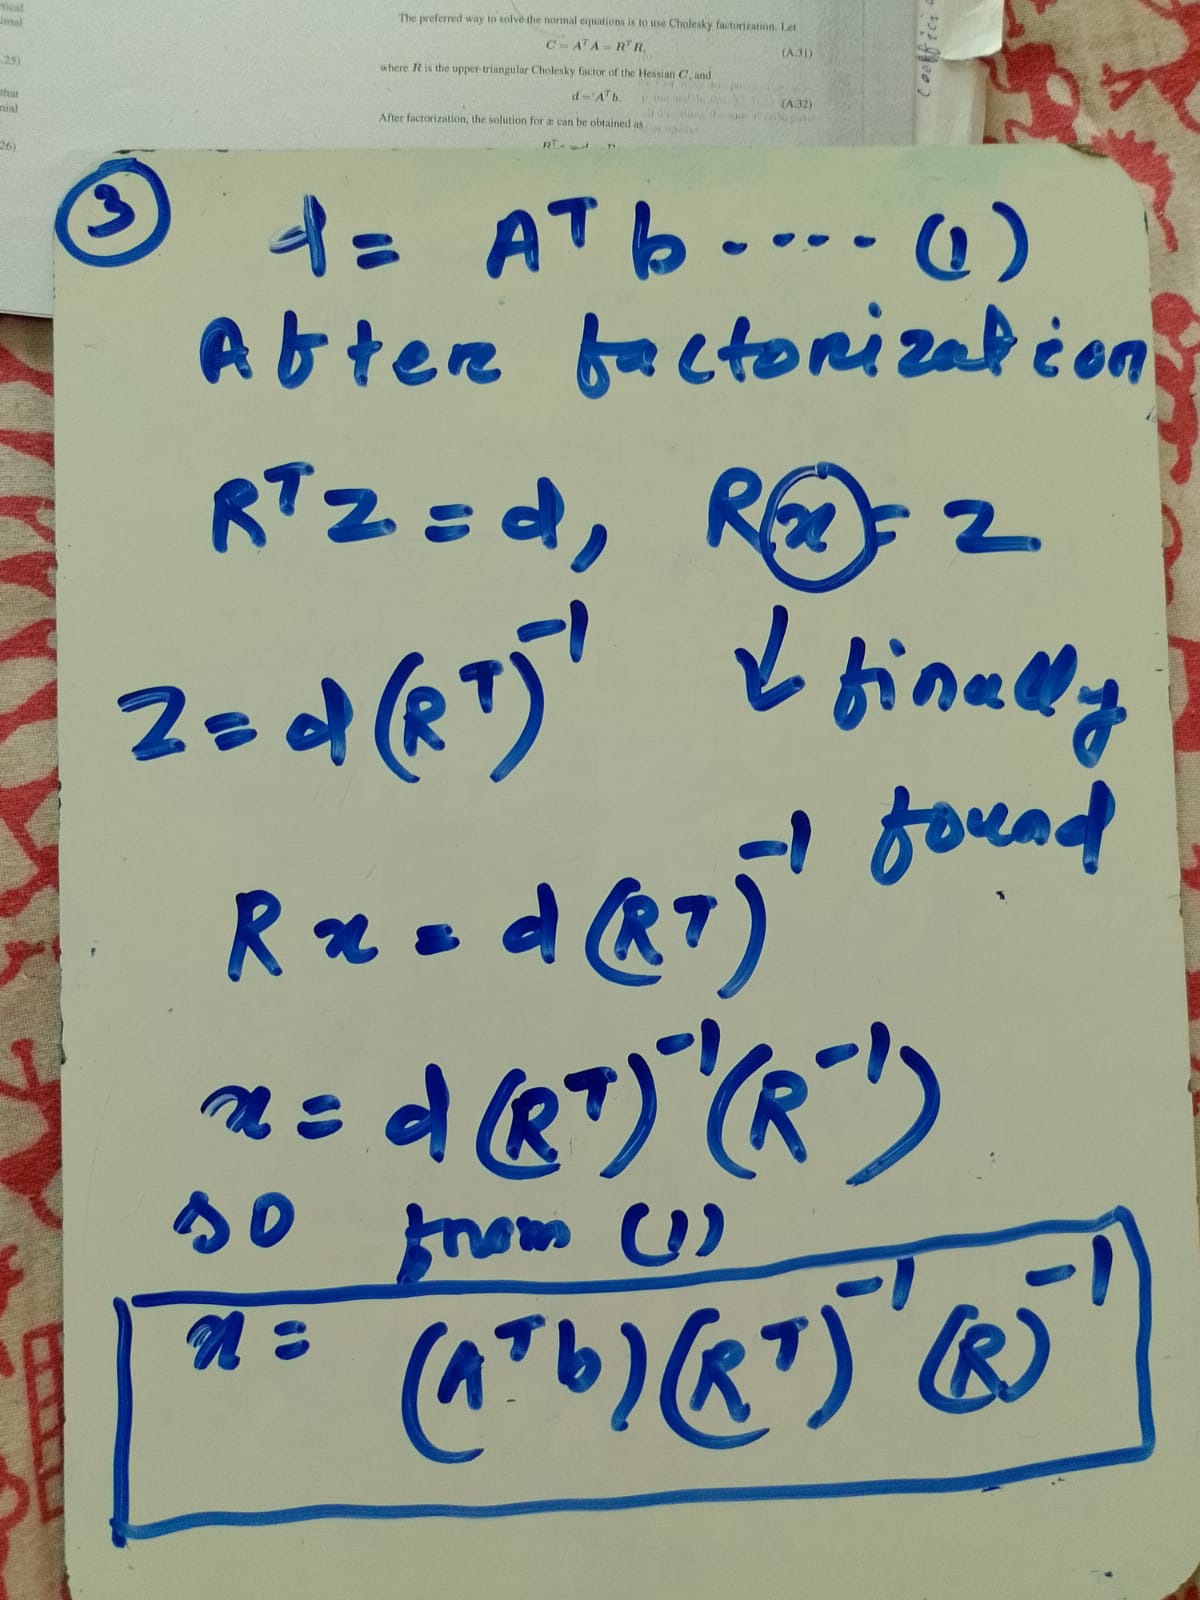 tical
imal
.25)
that
nial
26)
The preferred way to solve the normal equations is to use Cholesky factorization. Let
C = AᵀA = RᵀR, (A.31)
where R is the upper-triangular Cholesky factor of the Hessian C, and
d = Aᵀb. (A.32)
After factorization, the solution for x can be obtained as
coeffici
③ d = Aᵀ b ..... (1)
After factorization
Rᵀ z = d, R x = z
z = d (Rᵀ)⁻¹ ↓ finally
found
R x = d (Rᵀ)⁻¹
x = d (Rᵀ)⁻¹ (R⁻¹)
so from (1)
x = (Aᵀb) (Rᵀ)⁻¹ (R)⁻¹